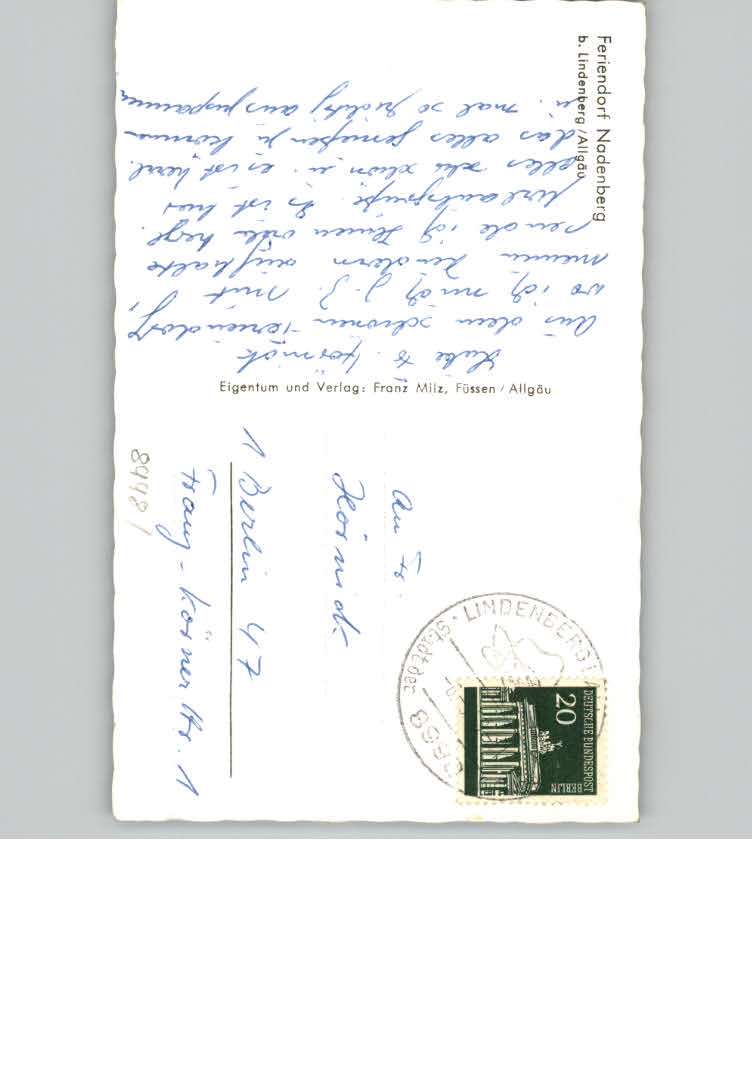 Feriendorf Nadenberg
b. Lindenberg/Allgäu
Liebe Fr. Hörnick
Aus dem schönen Feriendorf,
wo ich mich z. Z. mit
meinen Kindern aufhalte
sende ich Ihnen viele herzl.
Urlaubsgrüße. Es ist hier
alles sehr schön u. es ist herrl.
das alles genießen zu können
u. mal so richtig auszuspannen
Eigentum und Verlag: Franz Milz, Füssen/Allgäu
An Fr.
Hörnick
1 Berlin 47
Franz-Körner Str. 1
89981
LINDENBERG
Stadt der
20
DEUTSCHE BUNDESPOST
BERLIN